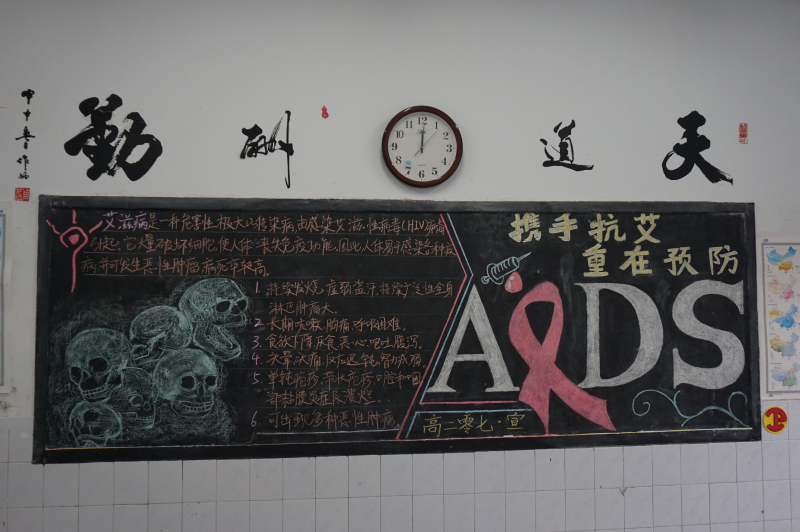 天道酬勤
艾滋病是一种危害性极大的传染病由感染艾滋性病毒(HIV)病毒
引起,它大量破坏细胞,使人体丧失免疫功能,因此人体易于感染各种疾
病并可发生恶性肿瘤,病死率较高.
1. 持续发烧,虚弱盗汗,持续广泛性全身
淋巴肿瘤大.
2. 长期咳嗽,胸痛,呼吸困难.
3. 食欲下降,厌食,恶心,呕吐,腹泻.
4. 头晕,头痛,反应迟钝,智力减弱
5. 单纯疱疹、带状疱疹,口腔和咽
部黏膜炎症及糜烂.
6. 可出现多种恶性肿瘤.
携手抗艾
重在预防
AIDS
高二零七·宣